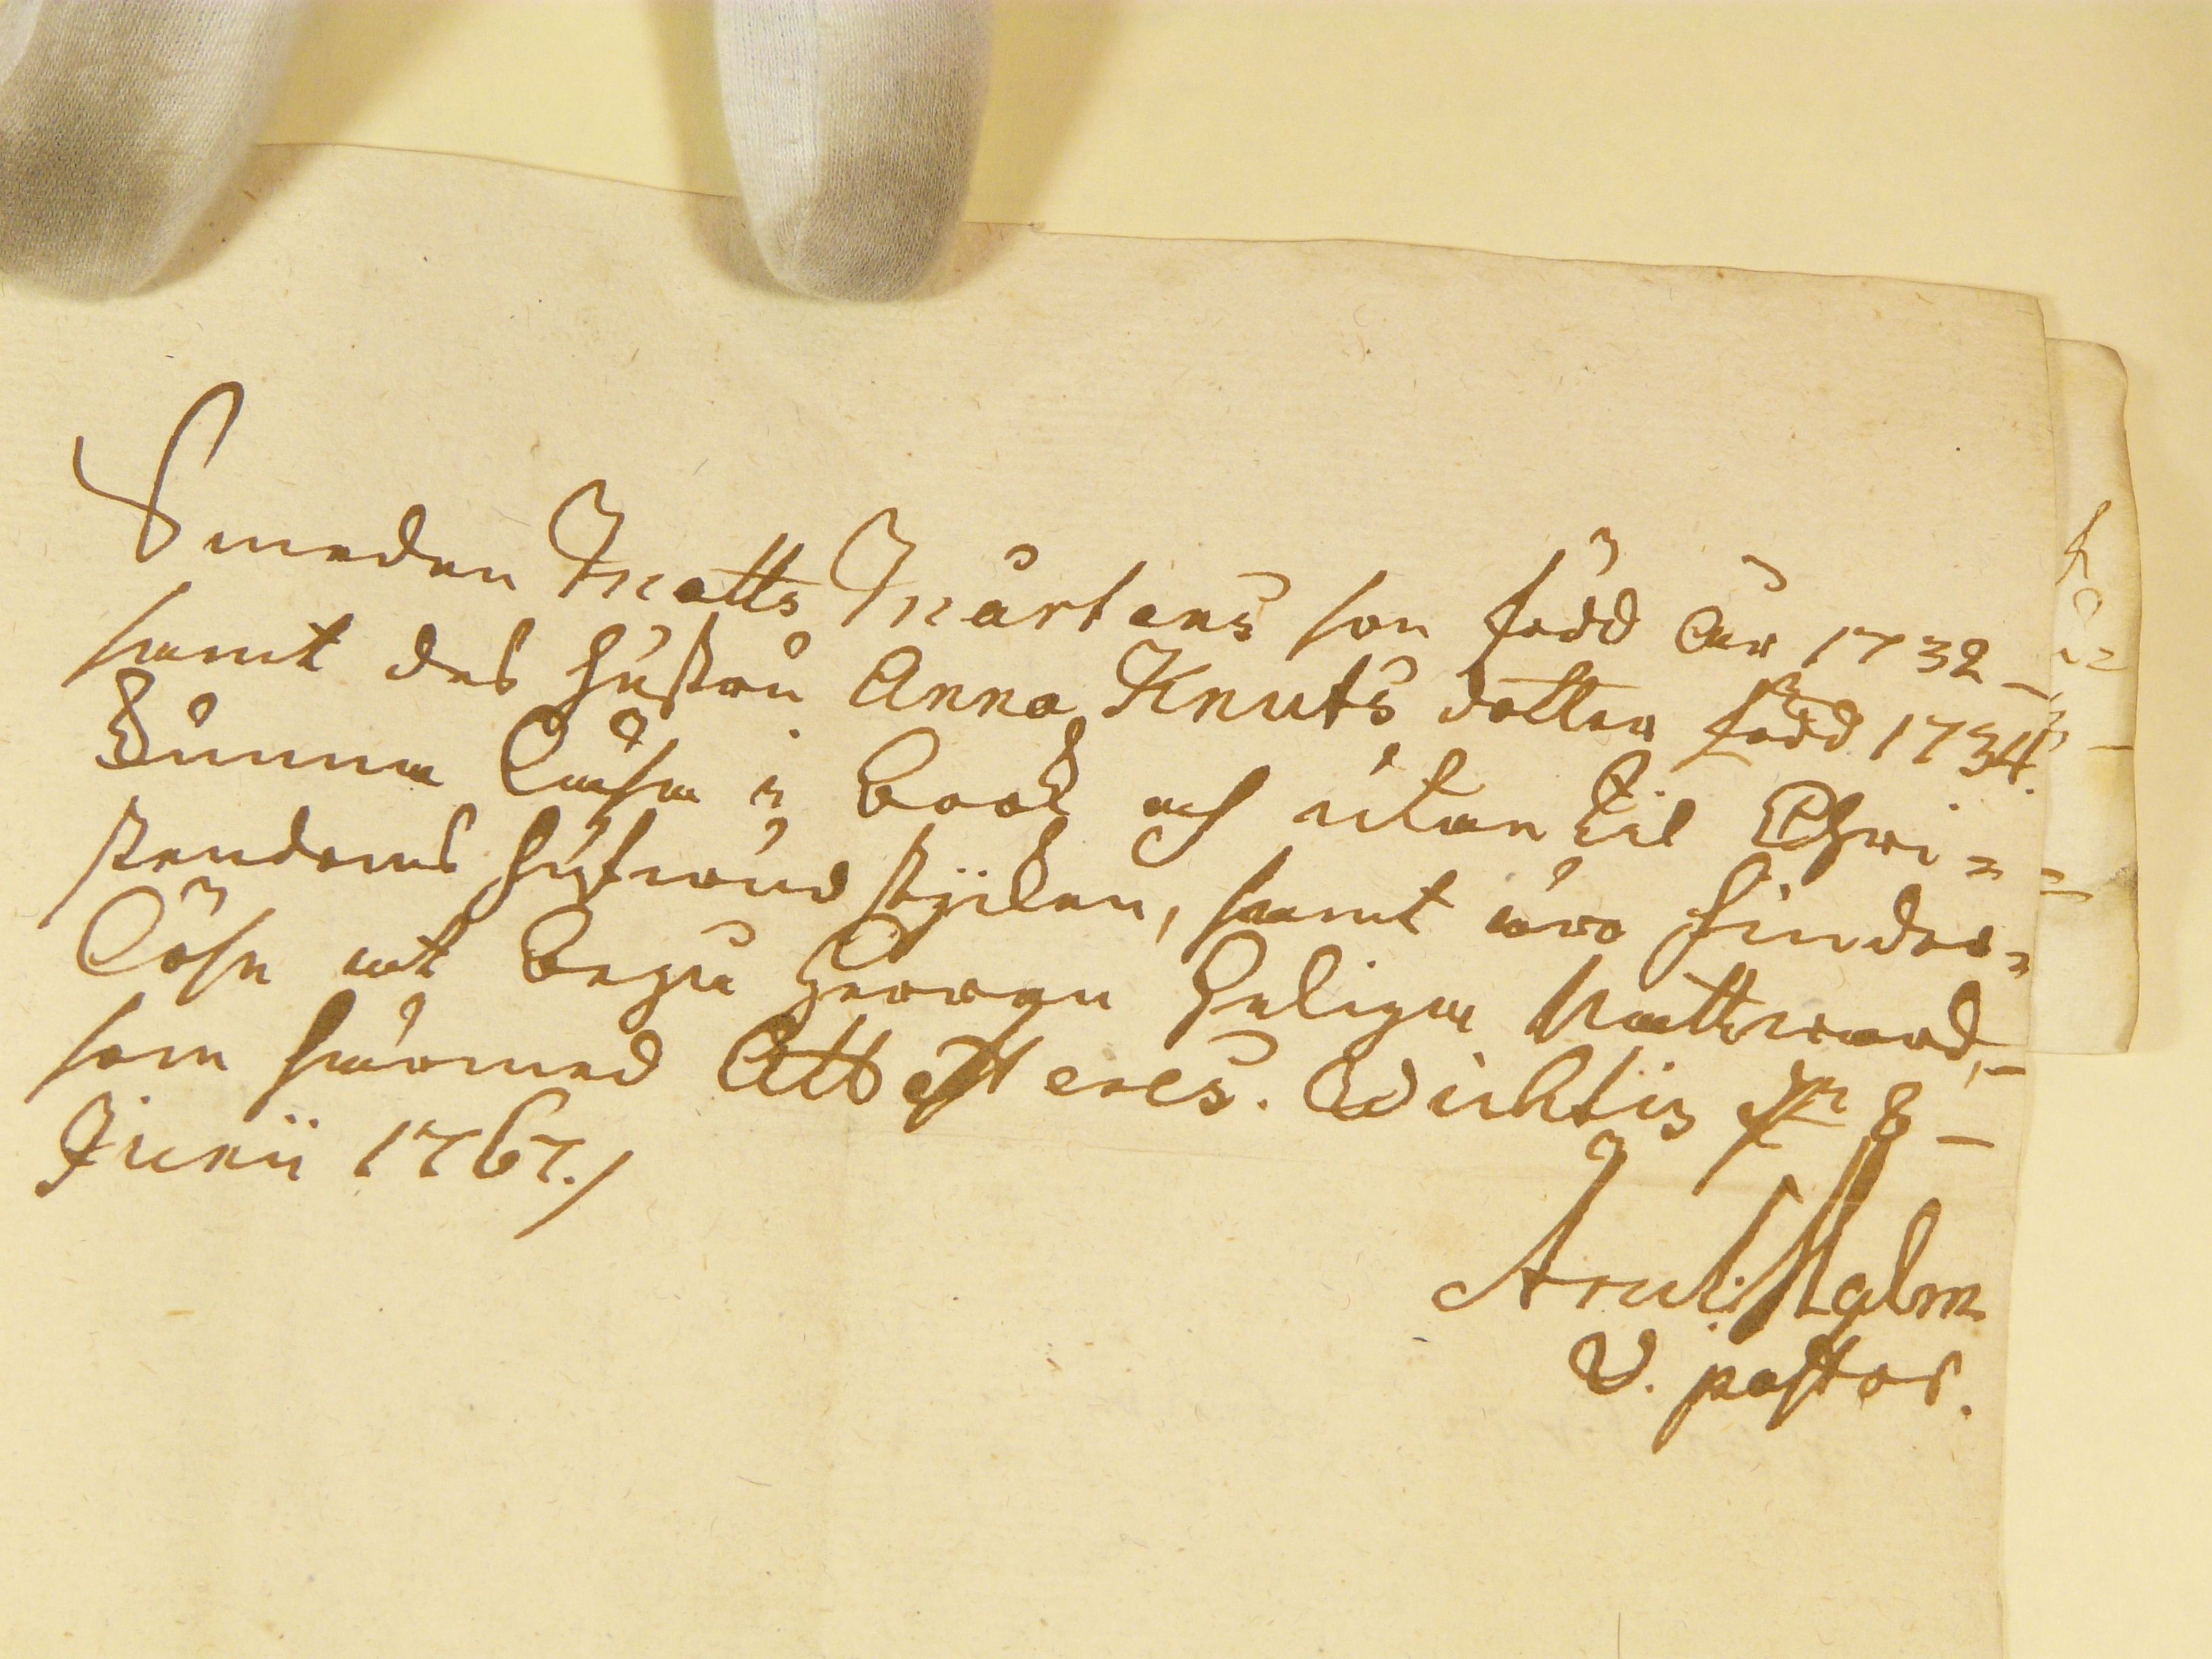 Smeden Matts Mårtens son född år 1732 –
samt des hustru Anna Knuts dotter född 1734.
kunna läsa i book och utan til Chri=
stendoms hufwud stycken, samt äro hinder=
löse at begå Herrans Heliga Nattward,
som härmed Attesteres. Wichtis d. 8 –
Junii 1767./
Arvid Malm
V. pastor.